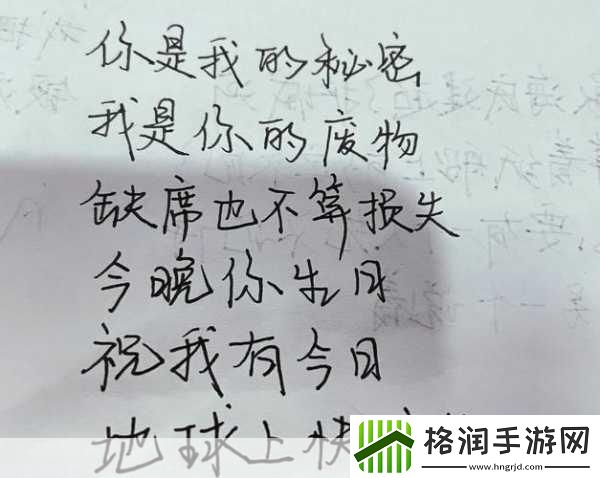 你是我的秘密
我是你的废物
缺席也不算损失
今晚你生日
祝我有今日
地球上快
格润手游网
www.hngrjd.com